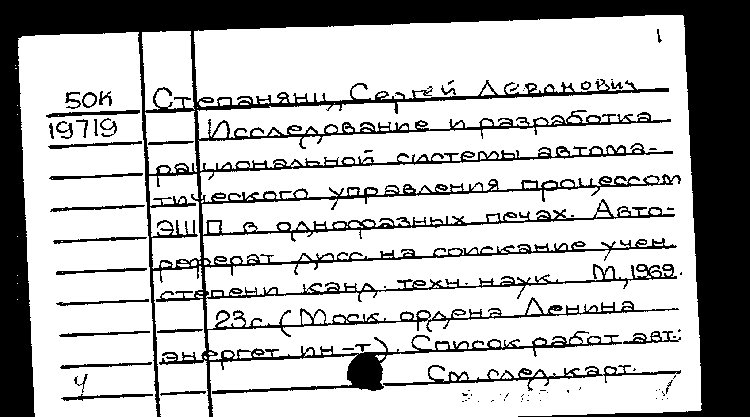 1
50К Степанянц, Сергей Левонович
19719 Исследование и разработка
рациональной системы автома-
тического управления процессом
ЭШП в однофазных печах. Авто-
реферат дисс. на соискание учен.
степени канд. техн. наук. М., 1969.
23с. (Моск. ордена Ленина
энергет. ин-т). Список работ авт.:
Ч См. след. карт.